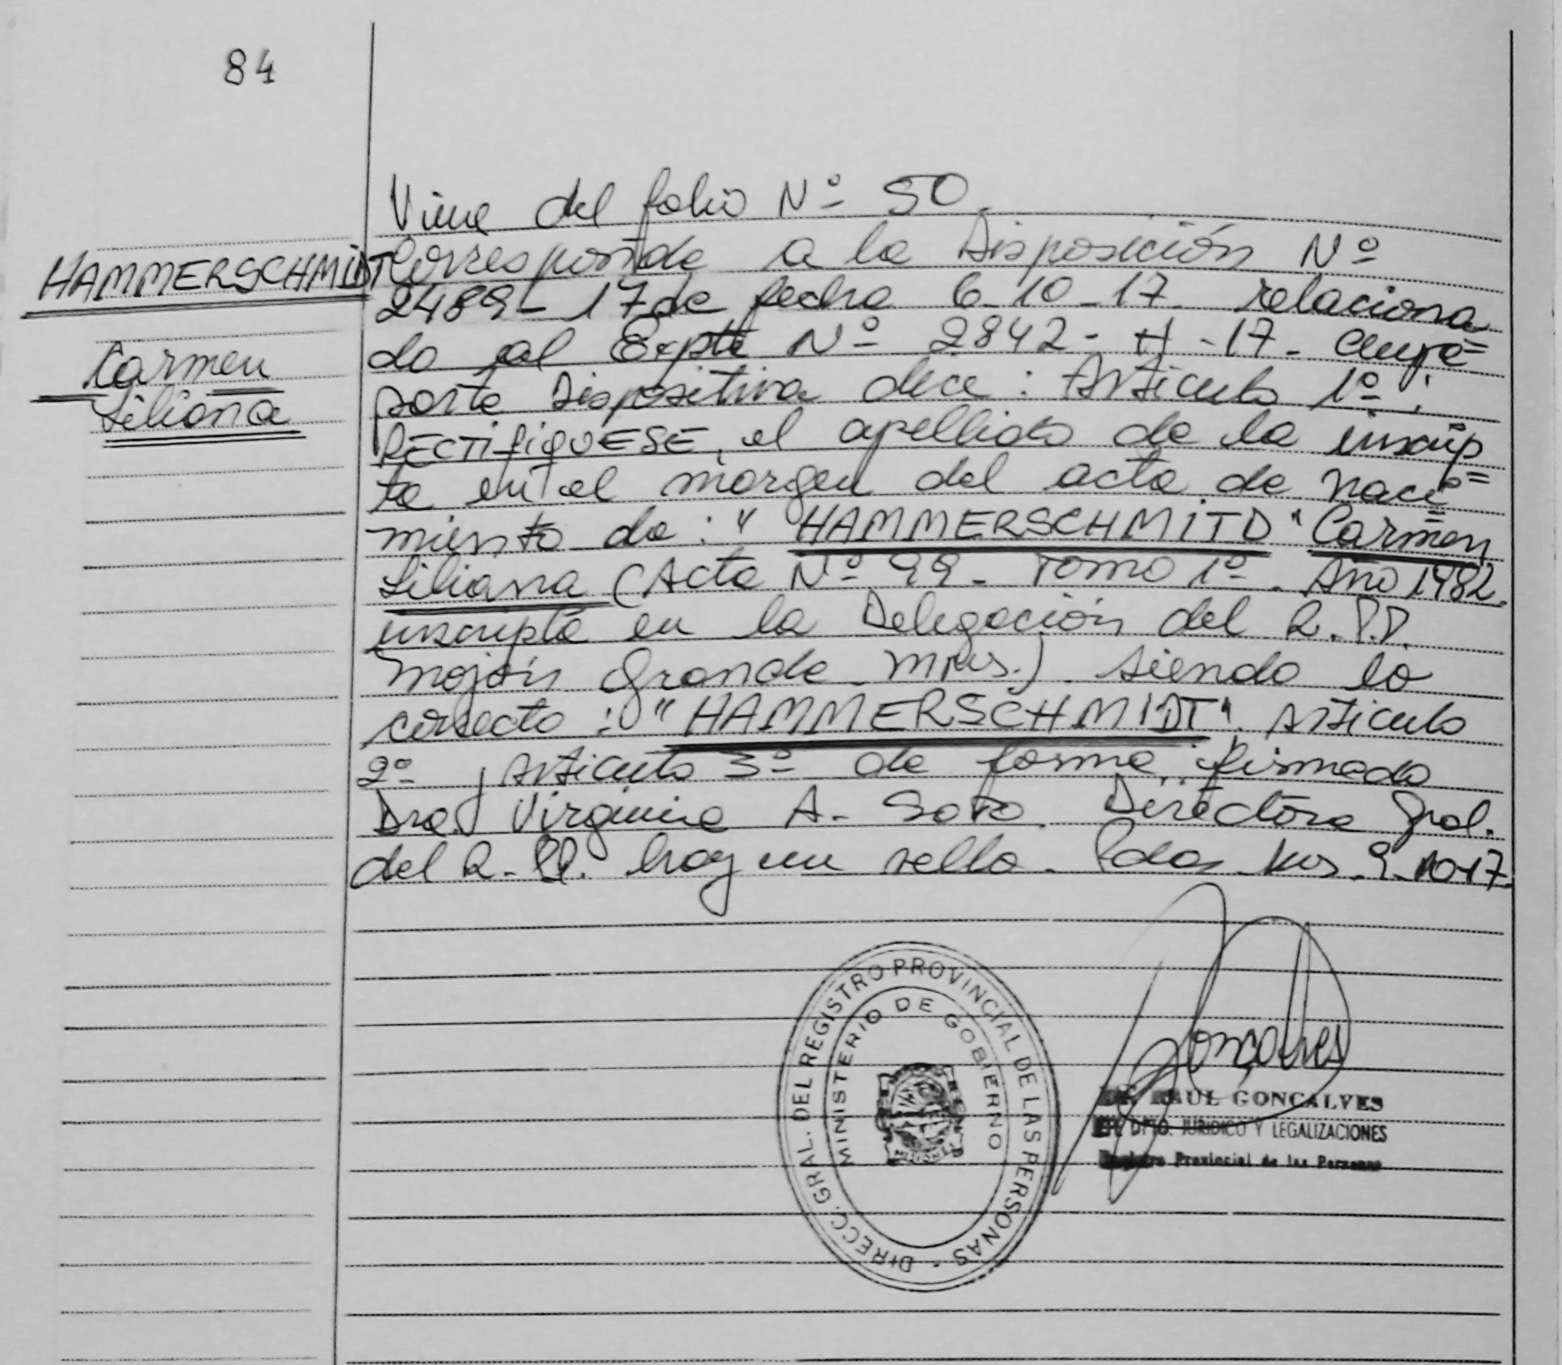 84
Viene del folio Nº 50.
HAMMERSCHMIDT
Corresponde a la Disposición Nº
2489-17 de fecha 6-10-17 relaciona
do al Expte Nº 2842-H-17- cuya=
Carmen
Liliana
parte Dispositiva dice: Artículo 1º:
RECTIFIQUESE, el apellido de la inscrip
ta en el margen del acta de naci=
miento de: "HAMMERSCHMITD" Carmen
Liliana (Acta Nº 99- Tomo 1º- Año 1982.
inscripta en la Delegación del R.P.P.
Mojón Grande Mnes.) siendo lo
correcto: "HAMMERSCHMIDT". Artículo
2º, Artículo 3º de forma, firmado
Dra. Virginia A. Soto Directora Gral.
del R.PP. hay un sello. Pdas. Mns. 9-10-17
DIRECC. GRAL. DEL REGISTRO PROVINCIAL DE LAS PERSONAS
MINISTERIO DE GOBIERNO
MISIONES
Gonçalves
RAUL GONCALVES
DPTO. JURIDICO Y LEGALIZACIONES
Registro Provincial de las Personas